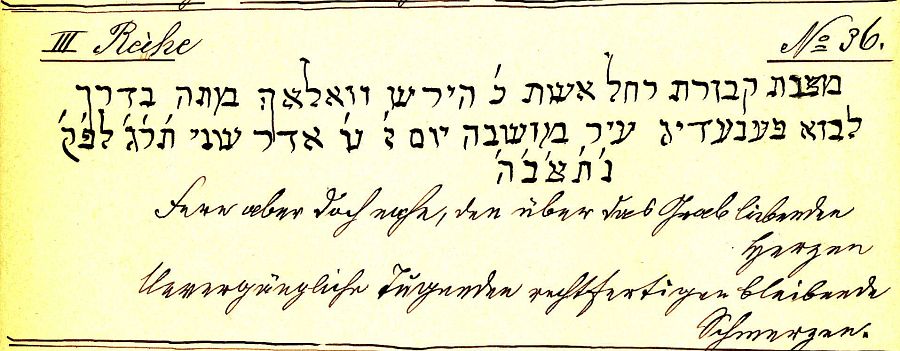 III Reihe No 36.
מצבת קבורת רחל אשת כ׳ הירש וואלאק מתה בדרך
לבוא פענעדיג עיר מושבה יום ז׳ ט׳ אדר שני ת׳ר׳ג׳ לפ׳ק׳
נ׳ת׳צ׳ב׳ה׳
Fern aber doch nahe, den über das Grab liebenden
Herzen
Unvergängliche Tugenden rechtfertigen bleibende
Schmerzen.